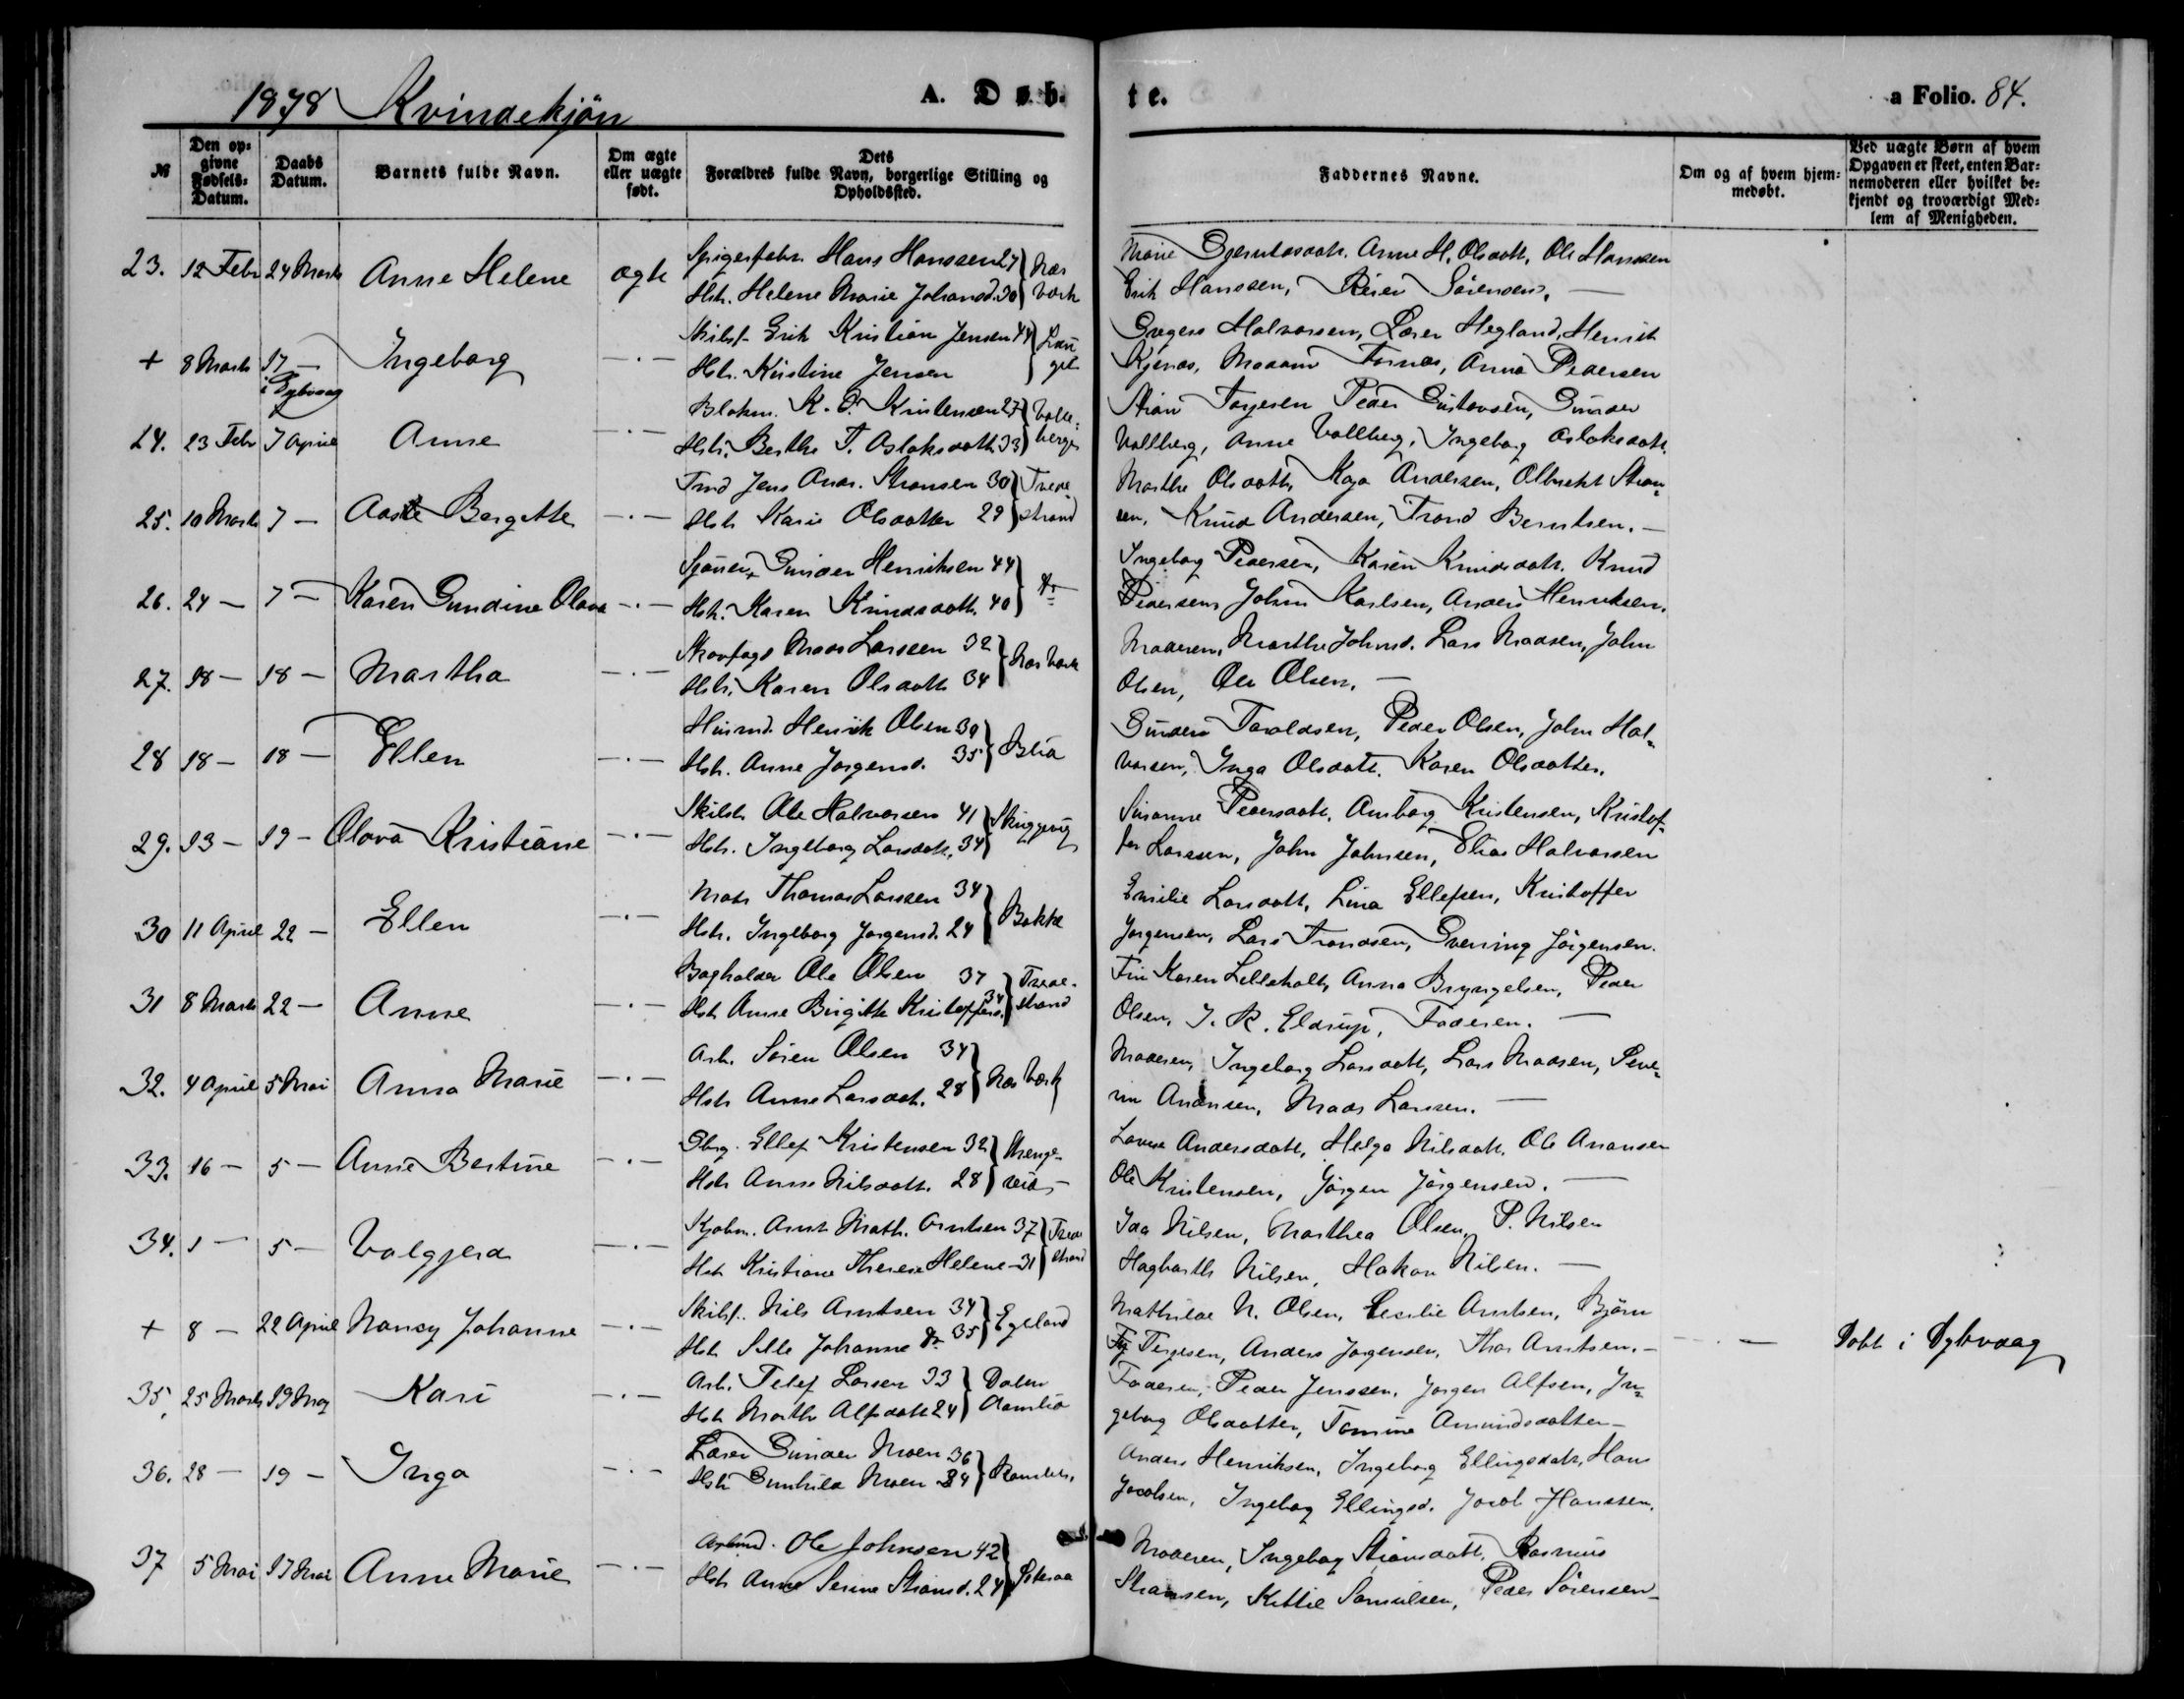 1878 Kvindekjön A. Døb-
te. a Folio. 84.
№ Den op-givne Fødsels-Datum. Daabs Datum. Barnets fulde Navn. Om ægte eller uægte født. Dets Forældres fulde Navn, borgerlige Stilling og Opholdssted. Faddernes Navne. Om og af hvem hjem-medøbt. Ved uægte Børn af hvem Opgaven er skeet, enten Bar-nemoderen eller hvilket be-kjendt og troværdigt Med-lem af Menigheden.
23. 12 Febr 24 Marts Anne Helene ægte Hans Hanssen 27 Næs Marie Anne H. Olsdatt, Ole Hanssen
Hstr. Helene Marie Johansd. 30 Værk Erik Hanssen, Sörensen. —
+ 8 Marts 17 — i Dybvaag Ingeborg —·— Skibsf. Erik Kristian Jensen 44 Gregers Halvorsen, Lærer Hegland, Henrik
Hstr. Kristine Jensen Madam Anna Pedersen
24. 23 Febr 7 April Anne —·— K. O. Kristensen 27 Torjesen Peder Gustavsen, Gunder
Hstr. Berthe T. Aslaksdatt 33 Vollberg, Anne Vollberg, Ingeborg Aslaksdatt.
25. 10 Marts 7 — Aaste Bergitte —·— Jens Andr. Stiansen 30 Tvede Marthe Olsdatt, Kaja Andersen, Albrekt Stian-
Hstr Karie Olsdatter 29 strand sen, Knud Andersen, Trond Berntsen. —
26. 24 — 7 — Karen Gundine Olava —·— Gunder Henriksen 44 Do Ingeborg Pedersen, Karen Knudsdatt. Knud
Hstr. Karen Knudsdatt. 40 Pedersen, John Karlsen, Anders Henriksen.
27. 18 — 18 — Martha —·— Skovfogd Mads Larssen 32 Næs Værk Moderen, Marthe Johnsd. Lars Madsen, John
Hstr. Karen Olsdatt 34 Olsen, Ole Olsen. —
28 18 — 18 — Ellen —·— Husmd. Henrik Olsen 39 Gunder Taraldsen, Peder Olsen, John Hal-
Hstr. Anne Jørgensd. 35 vorsen, Inga Olsdatt. Karen Olsdatter.
29. 13 — 19 — Olava Kristiane —·— Skibst. Ole Halvorsen 41 Susanne Pedersdatt, Kristensen, Kristof-
Hstr. Ingeborg Larsdatt, 34 fer Larssen, John Johnsen, Elias Halvorsen
30 11 April 22 — Ellen —·— Matr Thomas Larssen 34 Bakke Emilie Larsdatt, Lina Ellefsen, Kristoffer
Hstr. Ingeborg Jørgensd. 24 Jørgensen, Lars Trondsen, Jørgensen.
31 8 Marts 22 — Anne —·— Bogholder Ole Olsen 37 Tvede- Karen Lilleholt, Anna Bryngelsen, Peder
Hstr Anne Birgitte Kristoffers. 34 strand Olsen, J. R. Eldrup, Faderen. —
32. 4 April 5 Mai Anna Marie —·— Arb. Sören Olsen 34 Næs Værk Moderen, Ingeborg Larsdatt, Lars Madsen,
Hstr Anne Larsdat. 28 Andersen, Mads Larssen. —
33. 16 — 5 — Anne Bertine —·— Ellef Kristensen 32 Andersdatt, Helga Nilsdatt. Ole
Hstr Anne Nilsdatt. 28 Ole Kristensen, Jørgen Jørgensen. —
34. 1 — 5 — Valgjerd —·— Kjøbm. Arnt Math. Arntsen 37 Tvede Ida Nilsen, Marthea Olsen, P. Nilsen
Hstr Kristiane Therese Helene — 31 strand Hagbarth Nilsen, Hakon Nilsen. —
+ 8 — 22 April Nancy Johanne —·— Skibsf. Nils Arntsen 34 Egeland Mathilde N. Olsen, Cecilie Arntsen, Bjørn —·— Døbt i Dybvaag
Hstr Johanne Do 35 Terjesen, Anders Jørgensen, Thor Arntsen. —
35. 25 Marts 19 Maj Kari —·— Arb. Tellef Larsen 33 Dalen Faderen, Peder Jenssen, Jørgen Alfsen, In-
Hstr Marthe Alfsdatt 24 geborg Olsdatter, Tomine Amundsdatter —
36. 28 — 19 — Inga —·— Lærer Gunder Moen 36 Anders Henriksen, Ingeborg Ellingsdatt, Hans
Hstr Gunhild Moen 34 Jacobsen, Ingeborg Ellingsd. Jacob Hanssen.
37 5 Mai 17 Mai Anne Marie —·— Ole Johnsen 42 Moderen, Ingeborg Stiansdatt, Rasmus
Hstr Anne Serine Stiansd. 24 Stiansen, Kittil Samuelsen, Peder Sörensen —